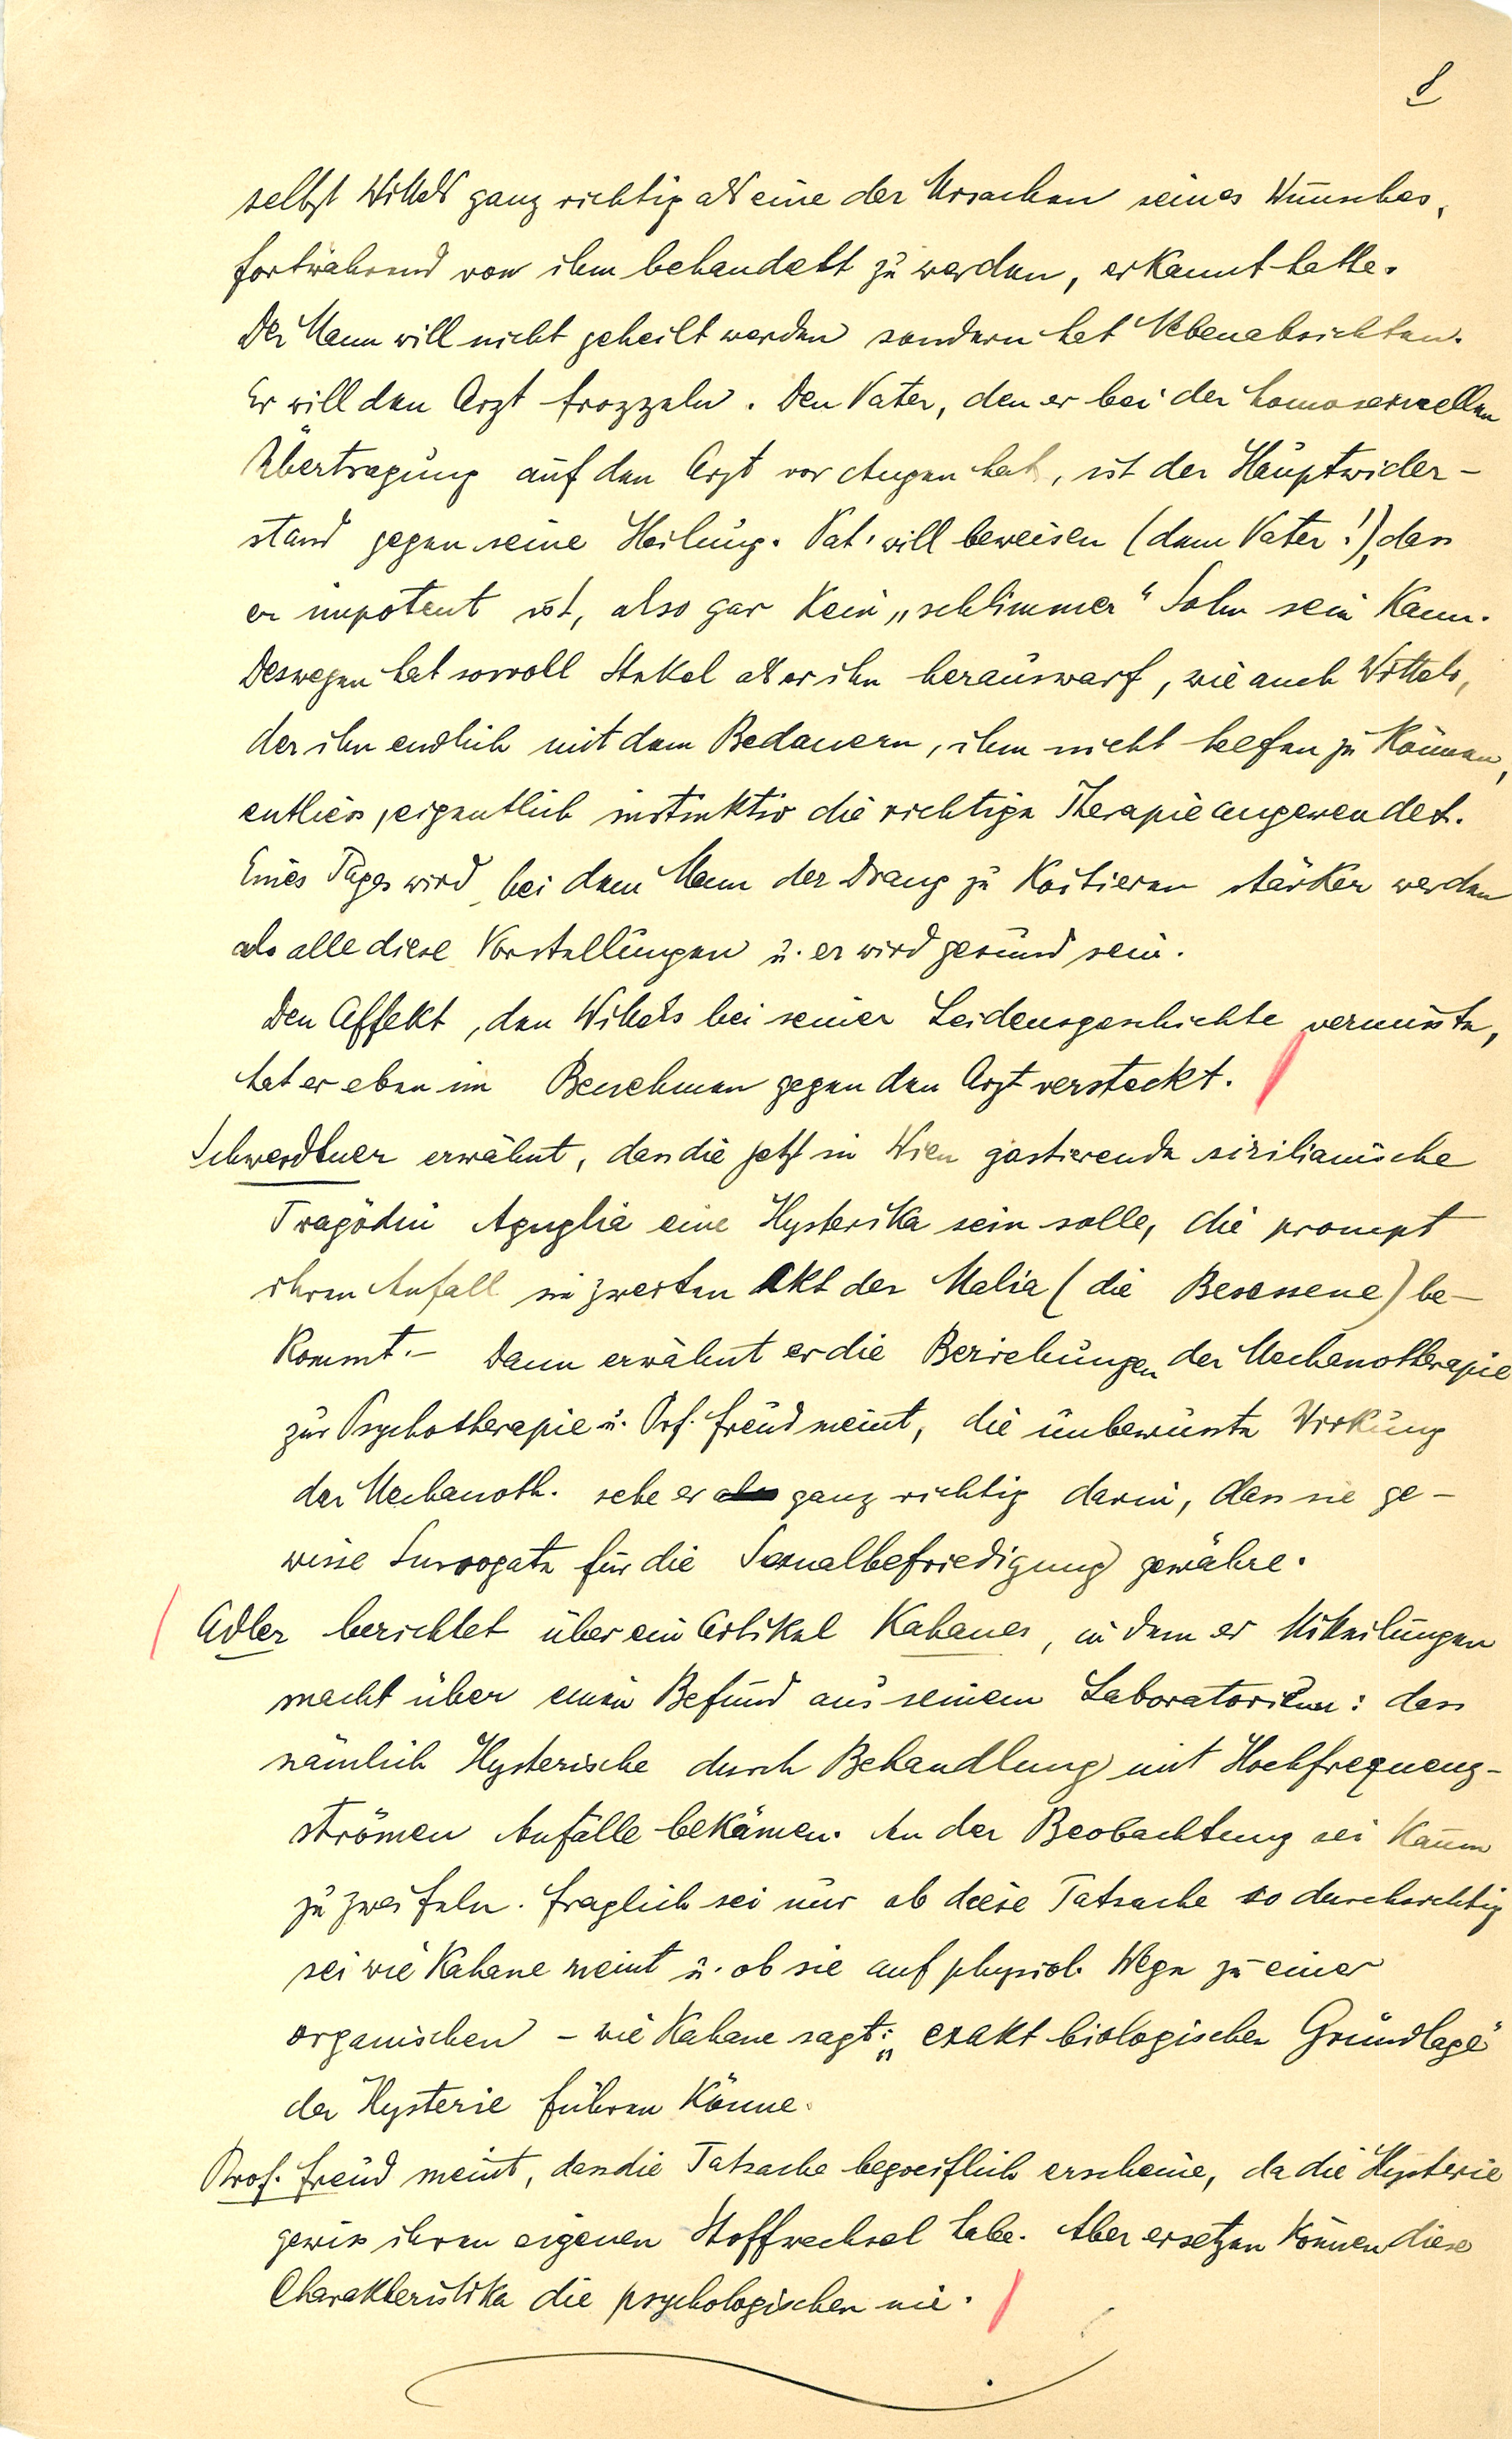 8
selbst Wittels ganz richtig als eine der Ursachen seines Wunsches,
fortwährend von ihm behandelt zu werden, erkannt hatte.
Der Mann will nicht geheilt werden sondern hat Nebenabsichten.
Er will den Arzt frozzeln. Den Vater, den er bei der homosexuellen
Übertragung auf den Arzt vor Augen hat, ist der Hauptwider-
stand gegen seine Heilung. Pat. will beweisen (dem Vater!), dass
er impotent ist, also gar kein „schlimmer“ Sohn sein kann.
Deswegen hat sowoll Stekel als er ihn herauswarf, wie auch Wittels,
der ihn endlich mit dem Bedauern, ihm nicht helfen zu können,
entliess, eigentlich instinktiv die richtige Therapie angewendet.
Eines Tages wird bei dem Mann der Drang zu Koitieren stärker werden
als alle diese Vorstellungen u. er wird gesund sein.
Den Affekt, den Wittels bei seiner Leidensgeschichte vermisste,
hat er eben im Benehmen gegen den Arzt versteckt.
Schwerdtner erwähnt, dass die jetzt in Wien gastierende sizilianische
Tragödin Aguglia eine Hysterika sein solle, die prompt
ihren Anfall im zweiten Akt der Malia (die Besessene) be-
kommt.– Dann erwähnt er die Beziehungen der Mechanotherapie
zur Psychotherapie u. Prf. Freud meint, die unbewusste Wirkung
der Mechanoth. sehe er ganz richtig darin, dass sie ge-
wisse Surrogate für die Sexualbefriedigung gewähre.
Adler berichtet über ein Artikel Kahanes, in dem er Mitteilungen
macht über einen Befund aus seinem Laboratorium: dass
nämlich Hysterische durch Behandlung mit Hochfrequenz-
strömen Anfälle bekämen. An der Beobachtung sei kaum
zu zweifeln. Fraglich sei nur ob diese Tatsache so durchsichtig
sei wie Kahane meint u. ob sie auf physiol. Wege zu einer
organischen – wie Kahane sagt: „exakt biologischen Grundlage“
der Hysterie führen könne.
Prof. Freud meint, dass die Tatsache begreiflich erscheine, da die Hysterie
gewiss ihren eigenen Stoffwechsel habe. Aber ersetzen können diese
Charakteristika die psychologischen nie.